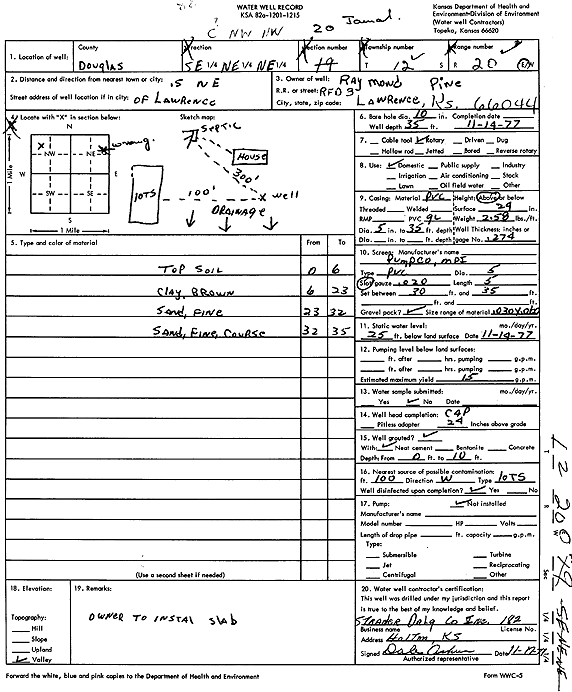 WATER WELL RECORD
KSA 82a-1201-1215
Kansas Department of Health and
Environment-Division of Environment
(Water well Contractors)
Topeka, Kansas 66620
C NW NW 20
1. Location of well:
County
Douglas
Fraction
SE 1/4 NE 1/4 NE 1/4
Section number
19
Township number
T 12 S
Range number
R 20 E/W
2. Distance and direction from nearest town or city: .5 NE
Street address of well location if in city: OF LAWRENCE
3. Owner of well: RAYMOND Pine
R.R. or street: RFD 3
City, state, zip code: LAWRENCE, KS. 66044
4. Locate with "X" in section below:
N
X
NW NE
wrong
W E
SW SE
S
1 Mile
1 Mile
Sketch map:
SEPTIC
HOUSE
300'
LOTS
100'
X well
DRAINAGE
6. Bore hole dia. 10 in. Completion date
Well depth 35 ft. 11-14-77
7. Cable tool ✓ Rotary Driven Dug
Hollow rod Jetted Bored Reverse rotary
8. Use: ✓ Domestic Public supply Industry
Irrigation Air conditioning Stock
Lawn Oil field water Other
9. Casing: Material PVC Height: Above or below
Threaded Welded Surface 24 in.
RMP PVC GL Weight 2.50 lbs./ft.
Dia. 5 in. to 35 ft. depth Wall Thickness: inches or
Dia. in. to ft. depth gage No. .274
10. Screen: Manufacturer's name
PUMPCO, MPI
Type PVC Dia. 5
Slot/gauze .020 Length 5
Set between 30 ft. and 35 ft.
ft. and ft.
Gravel pack? ✓ Size range of material
11. Static water level: mo./day/yr.
25 ft. below land surface Date 11-14-77
12. Pumping level below land surfaces:
ft. after hrs. pumping g.p.m.
ft. after hrs. pumping g.p.m.
Estimated maximum yield 15 g.p.m.
13. Water sample submitted: mo./day/yr.
Yes ✓ No Date
14. Well head completion: CAP
Pitless adapter 24 Inches above grade
15. Well grouted? ✓
With: ✓ Neat cement Bentonite Concrete
Depth: From 0 ft. to 10 ft.
16. Nearest source of possible contamination:
ft. 100 Direction W Type LOTS
Well disinfected upon completion? ✓ Yes No
17. Pump: ✓ Not installed
Manufacturer's name
Model number HP Volts
Length of drop pipe ft. capacity g.p.m.
Type:
Submersible Turbine
Jet Reciprocating
Centrifugal Other
5. Type and color of material From To
TOP SOIL 0 6
CLAY, BROWN 6 23
SAND, FINE 23 32
SAND, FINE, COURSE 32 35
(Use a second sheet if needed)
18. Elevation:
Topography:
Hill
Slope
Upland
✓ Valley
19. Remarks:
OWNER TO INSTAL slab
20. Water well contractor's certification:
This well was drilled under my jurisdiction and this report
is true to the best of my knowledge and belief.
STRADER Drlg Co Inc. 182
Business name License No.
Address Holton, KS
Signed Date
Authorized representative
Forward the white, blue and pink copies to the Department of Health and Environment
Form WWC-5